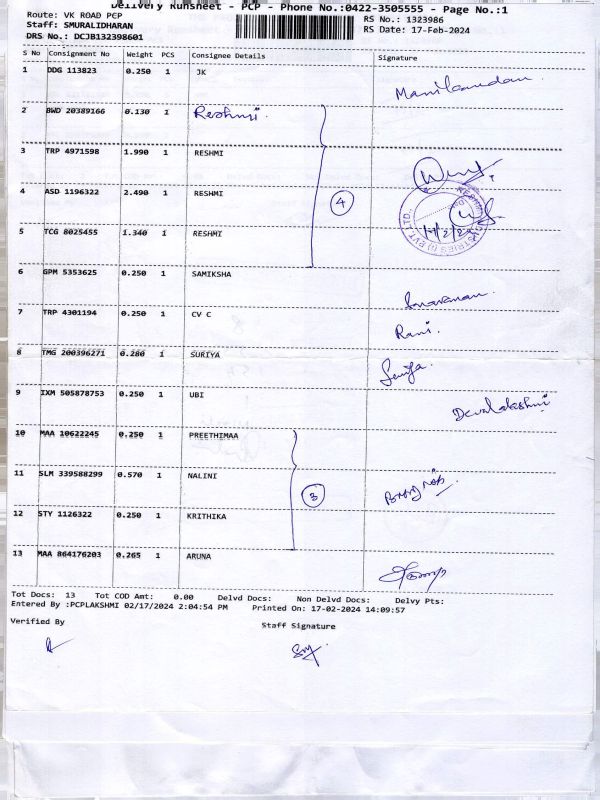 Delivery Runsheet - PCP - Phone No.:0422-3505555 - Page No.:1
Route: VK ROAD PCP
RS No.: 1323986
Staff: SMURALIDHARAN
RS Date: 17-Feb-2024
DRS No.: DCJB132398601
S No Consignment No Weight PCS Consignee Details Signature
1 DDG 113823 0.250 1 JK
Manikandan
2 BWD 20389166 0.130 1 Reshmi
3 TRP 4971598 1.990 1 RESHMI
4 ASD 1196322 2.490 1 RESHMI
4
5 TCG 8025455 1.340 1 RESHMI
6 GPM 5353625 0.250 1 SAMIKSHA
7 TRP 4301194 0.250 1 CV C
Rani.
8 TMG 200396271 0.280 1 SURIYA
9 IXM 505878753 0.250 1 UBI
Devalakshmi
10 MAA 10622245 0.250 1 PREETHIMAA
11 SLM 339588299 0.570 1 NALINI
3
12 STY 1126322 0.250 1 KRITHIKA
13 MAA 864176203 0.265 1 ARUNA
Tot Docs: 13 Tot COD Amt: 0.00 Delvd Docs: Non Delvd Docs: Delvy Pts:
Entered By :PCPLAKSHMI 02/17/2024 2:04:54 PM Printed On: 17-02-2024 14:09:57
Verified By Staff Signature